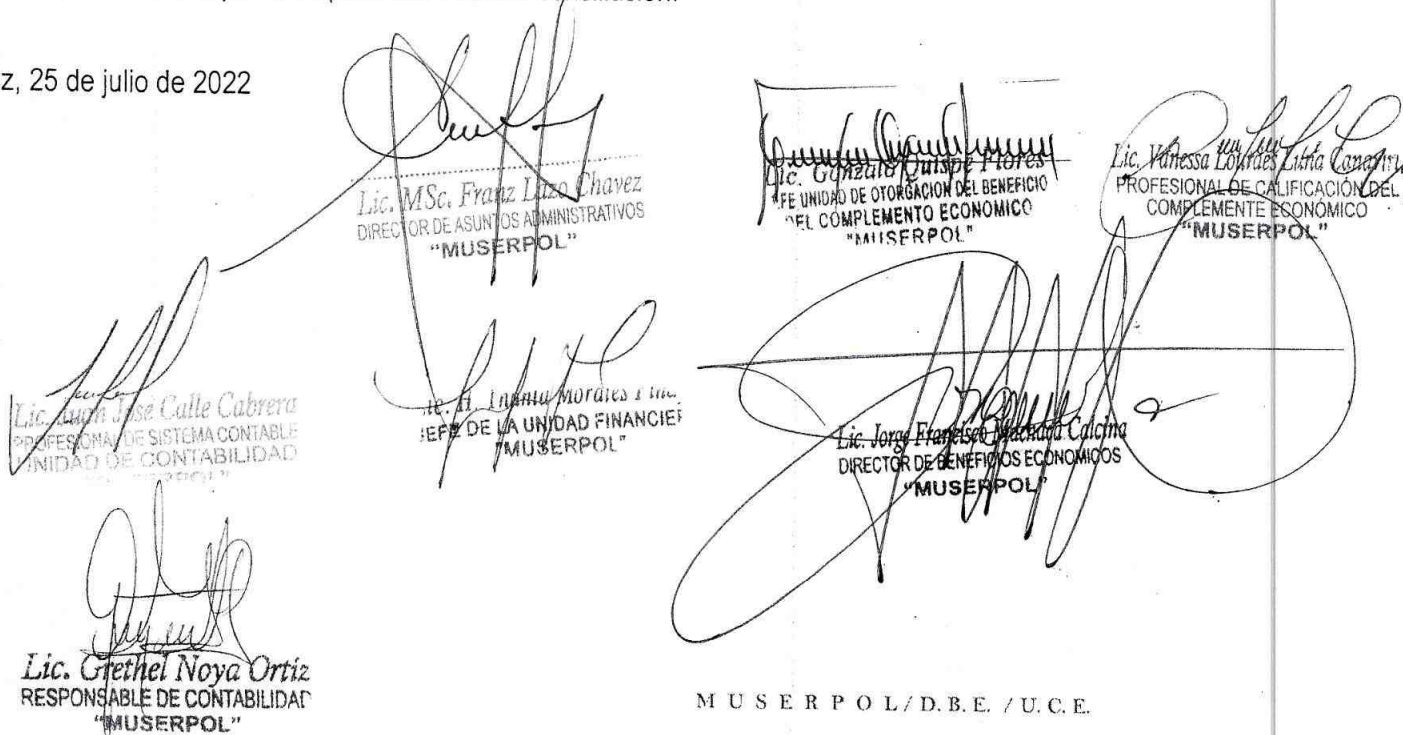 z, 25 de julio de 2022
Lic. MSc. Franz Lazo Chavez
DIRECTOR DE ASUNTOS ADMINISTRATIVOS
"MUSERPOL"
Lic. Gonzalo Quispe Flores
FE UNIDAD DE OTORGACION DEL BENEFICIO
DEL COMPLEMENTO ECONOMICO
"MUSERPOL"
Lic. Vanessa Lourdes
PROFESIONAL DE CALIFICACIÓN DEL
COMPLEMENTE ECONÓMICO
"MUSERPOL"
Lic. Juan José Calle Cabrera
PROFESIONAL DE SISTEMA CONTABLE
UNIDAD DE CONTABILIDAD
Morales
JEFE DE LA UNIDAD FINANCIER
"MUSERPOL"
Lic. Jorge Francisco Machaca Calcina
DIRECTOR DE BENEFICIOS ECONOMICOS
"MUSERPOL"
Lic. Grethel Noya Ortiz
RESPONSABLE DE CONTABILIDAD
"MUSERPOL"
MUSERPOL/D.B.E. / U.C.E.